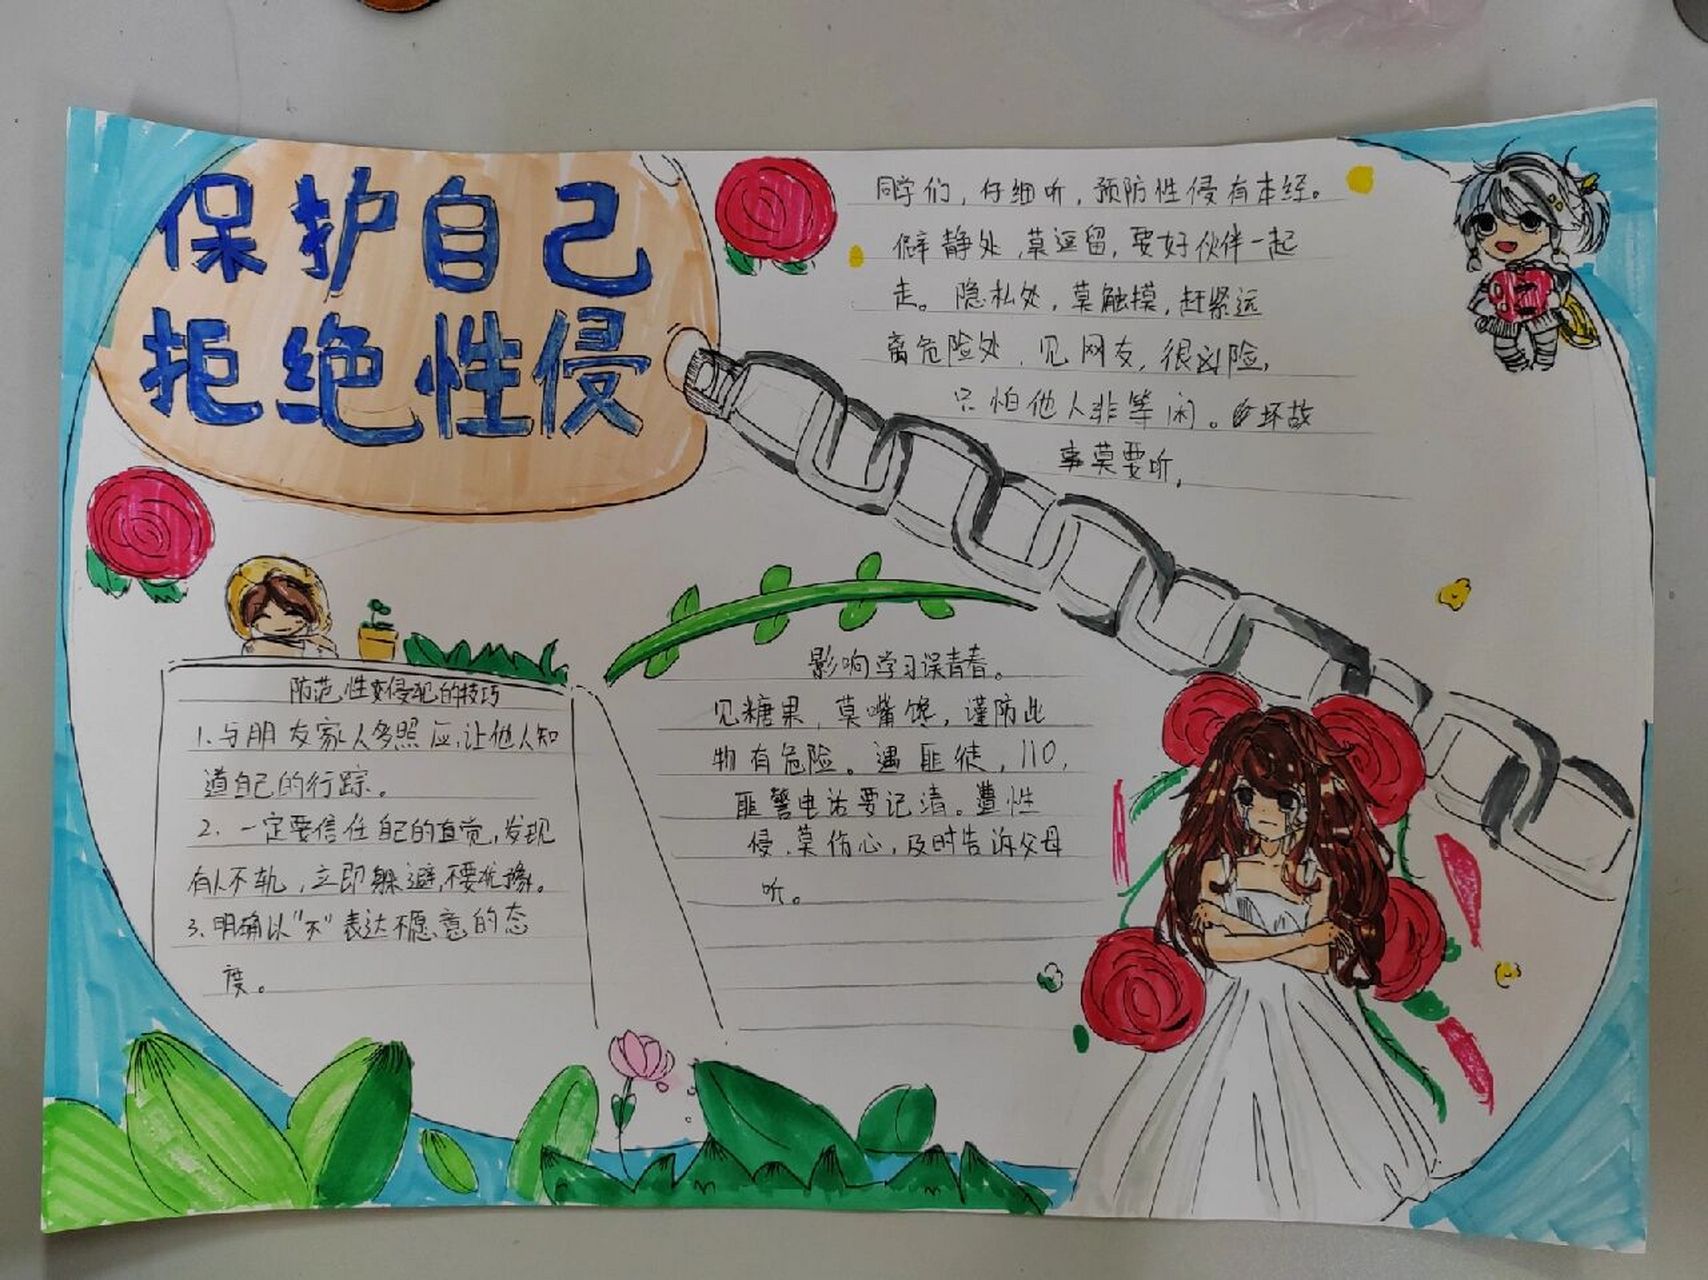 保护自己
拒绝性侵
同学们，仔细听，预防性侵有本经。
僻静处，莫逗留，要好伙伴一起
走。隐私处，莫触摸，赶紧远
离危险处，见网友，很凶险，
只怕他人非等闲。坏故
事莫要听，
影响学习误青春。
见糖果，莫嘴馋，谨防此
物有危险。遇匪徒，110，
匪警电话要记清。遭性
侵，莫伤心，及时告诉父母
听。
防范性侵犯的技巧
1.与朋友家人多照应，让他人知
道自己的行踪。
2.一定要信任自己的直觉，发现
有人不轨，立即躲避，不要犹豫。
3.明确以"不"表达不愿意的态
度。